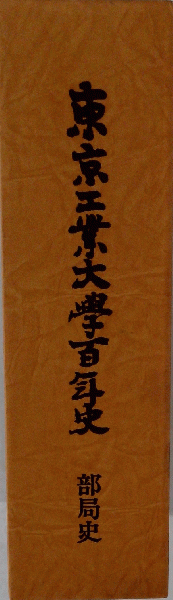 東京工業大學百年史
部局史